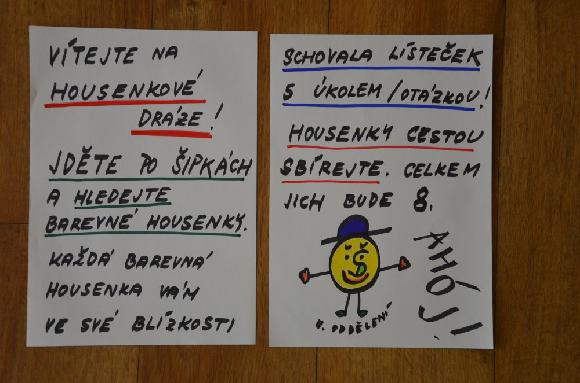 VÍTEJTE NA
HOUSENKOVÉ
DRÁZE!
JDĚTE PO ŠIPKÁCH
A HLEDEJTE
BAREVNÉ HOUSENKY.
KAŽDÁ BAREVNÁ
HOUSENKA VÁM
VE SVÉ BLÍZKOSTI
SCHOVALA LÍSTEČEK
S ÚKOLEM/OTÁZKOU!
HOUSENKY CESTOU
SBÍREJTE. CELKEM
JICH BUDE 8.
AHÓJ!
ODDĚLENÍ